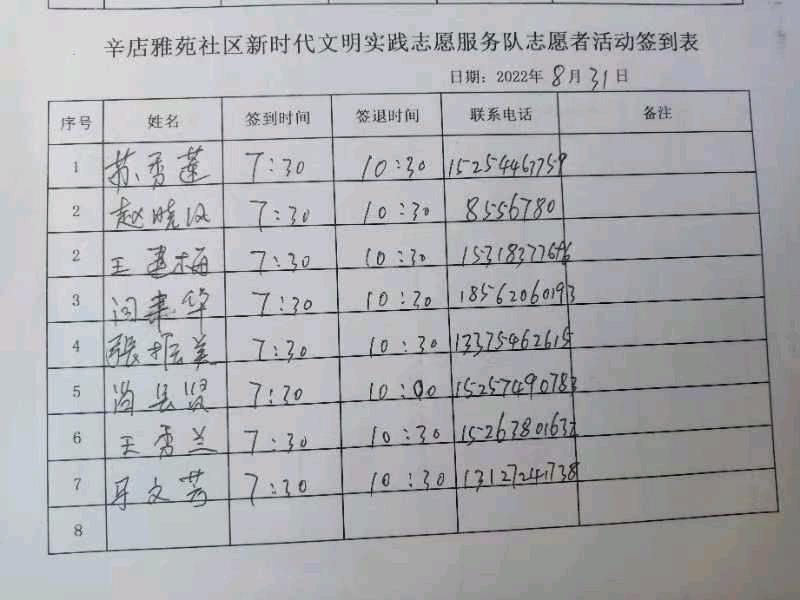 辛店雅苑社区新时代文明实践志愿服务队志愿者活动签到表
日期：2022年 8月 31日
序号 姓名 签到时间 签退时间 联系电话 备注
1 苏秀莲 7:30 10:30 15254467759
2 赵晓汉 7:30 10:30 8556780
2 王建梅 7:30 10:30
3 闫寿华 7:30 10:30 18562060193
4 张振美 7:30 10:30 13375462615
5 尚县贤 7:30 10:00 15257490783
6 王秀兰 7:30 10:30
7 牙文芳 7:30 10:30 13127241738
8